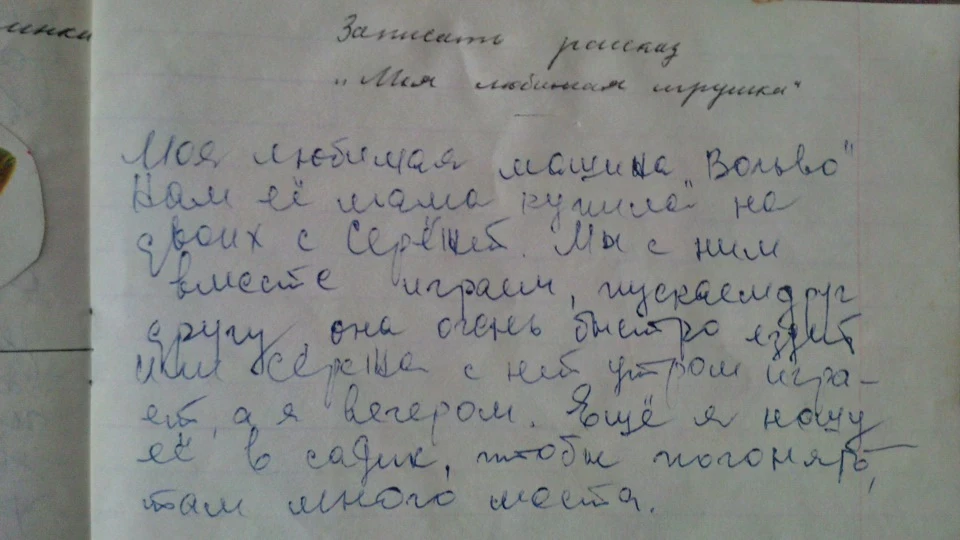 инки
Записать рассказ
„Моя любимая игрушка"
Моя любимая машина „Вольво"
Нам её мама купила на
двоих с Серёжей. Мы с ним
вместе играем, пускаем друг
другу, она очень быстро ездит
или Серёжа с ней утром игра-
ет, а я вечером. Ещё я ношу
её в садик, чтобы погонять,
там много места.